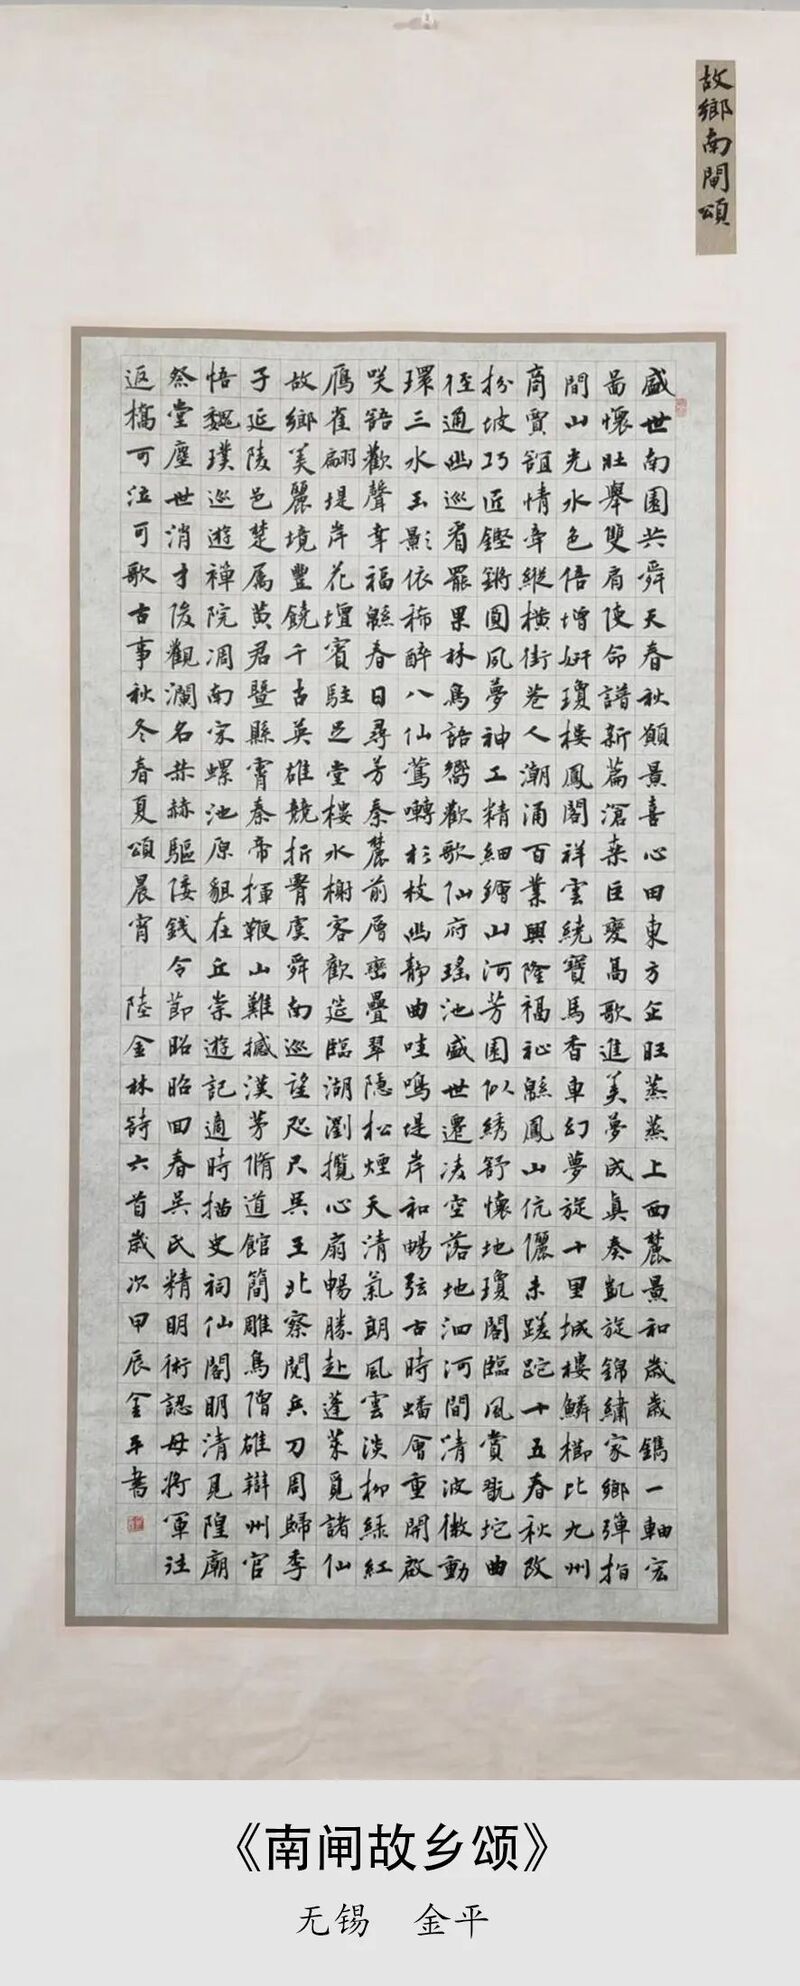 故鄉南閘頌
盛世南園共舜天春秋願景喜心田東方企旺蒸蒸上西麓景和歲歲鐫一軸宏
啚懷壯舉雙肩使命譜新篇滄桒巨變高歌進美夢成真奏凱旋錦繡家鄉彈指
間山光水色倍增妍瓊樓鳳閣祥雲繞寶馬香車幻夢旋十里城樓鱗櫛比九州
商賈誼情牵縱横街巷人潮涌百業興隆福祉緜鳳山伉儷未蹉跎十五春秋改
扮坡巧匠鏗鏘圓夙夢神工精細繪山河芳園似綉舒懷地瓊閣臨風賞翫坨曲
徑通幽巡看罷果林鳥語嚮歡歌仙府瑤池盛世遷凌空落地泗河間清波微動
環三水玉影依稀醉八仙鶯囀杉枝幽靜曲哇鳴堤岸和暢弦古時蟠會重開啟
咲語歡聲幸福緜春日尋芳秦麓前層巒疊翠隱松煙天清氣朗風雲淡柳綠紅
鴈雀翩堤岸花壇賓駐足堂樓水榭客歡造臨湖瀏攬心扇暢勝赴蓬萊覓諸仙
故鄉美麗境豐饒千古英雄競折骨虞舜南巡望咫尺吴王北察閱兵刀周歸季
子延陵邑楚属黄君暨縣霄秦帝揮鞭山難撼漢茅脩道館簡雕鳥僧雄辯州官
悟魏璞巡遊禅院凋南宋螺池原貌在丘崇遊記適時描史祠仙閣明清見隍廟
祭堂塵世消才俊觀瀾名赫赫驅倭錢令節昭昭回春吴氏精明術認母將軍泣
返橋可泣可歌古事秋冬春夏頌晨宵 陸金林詩六首歲次甲辰金平書
《南闸故乡颂》
无锡 金平